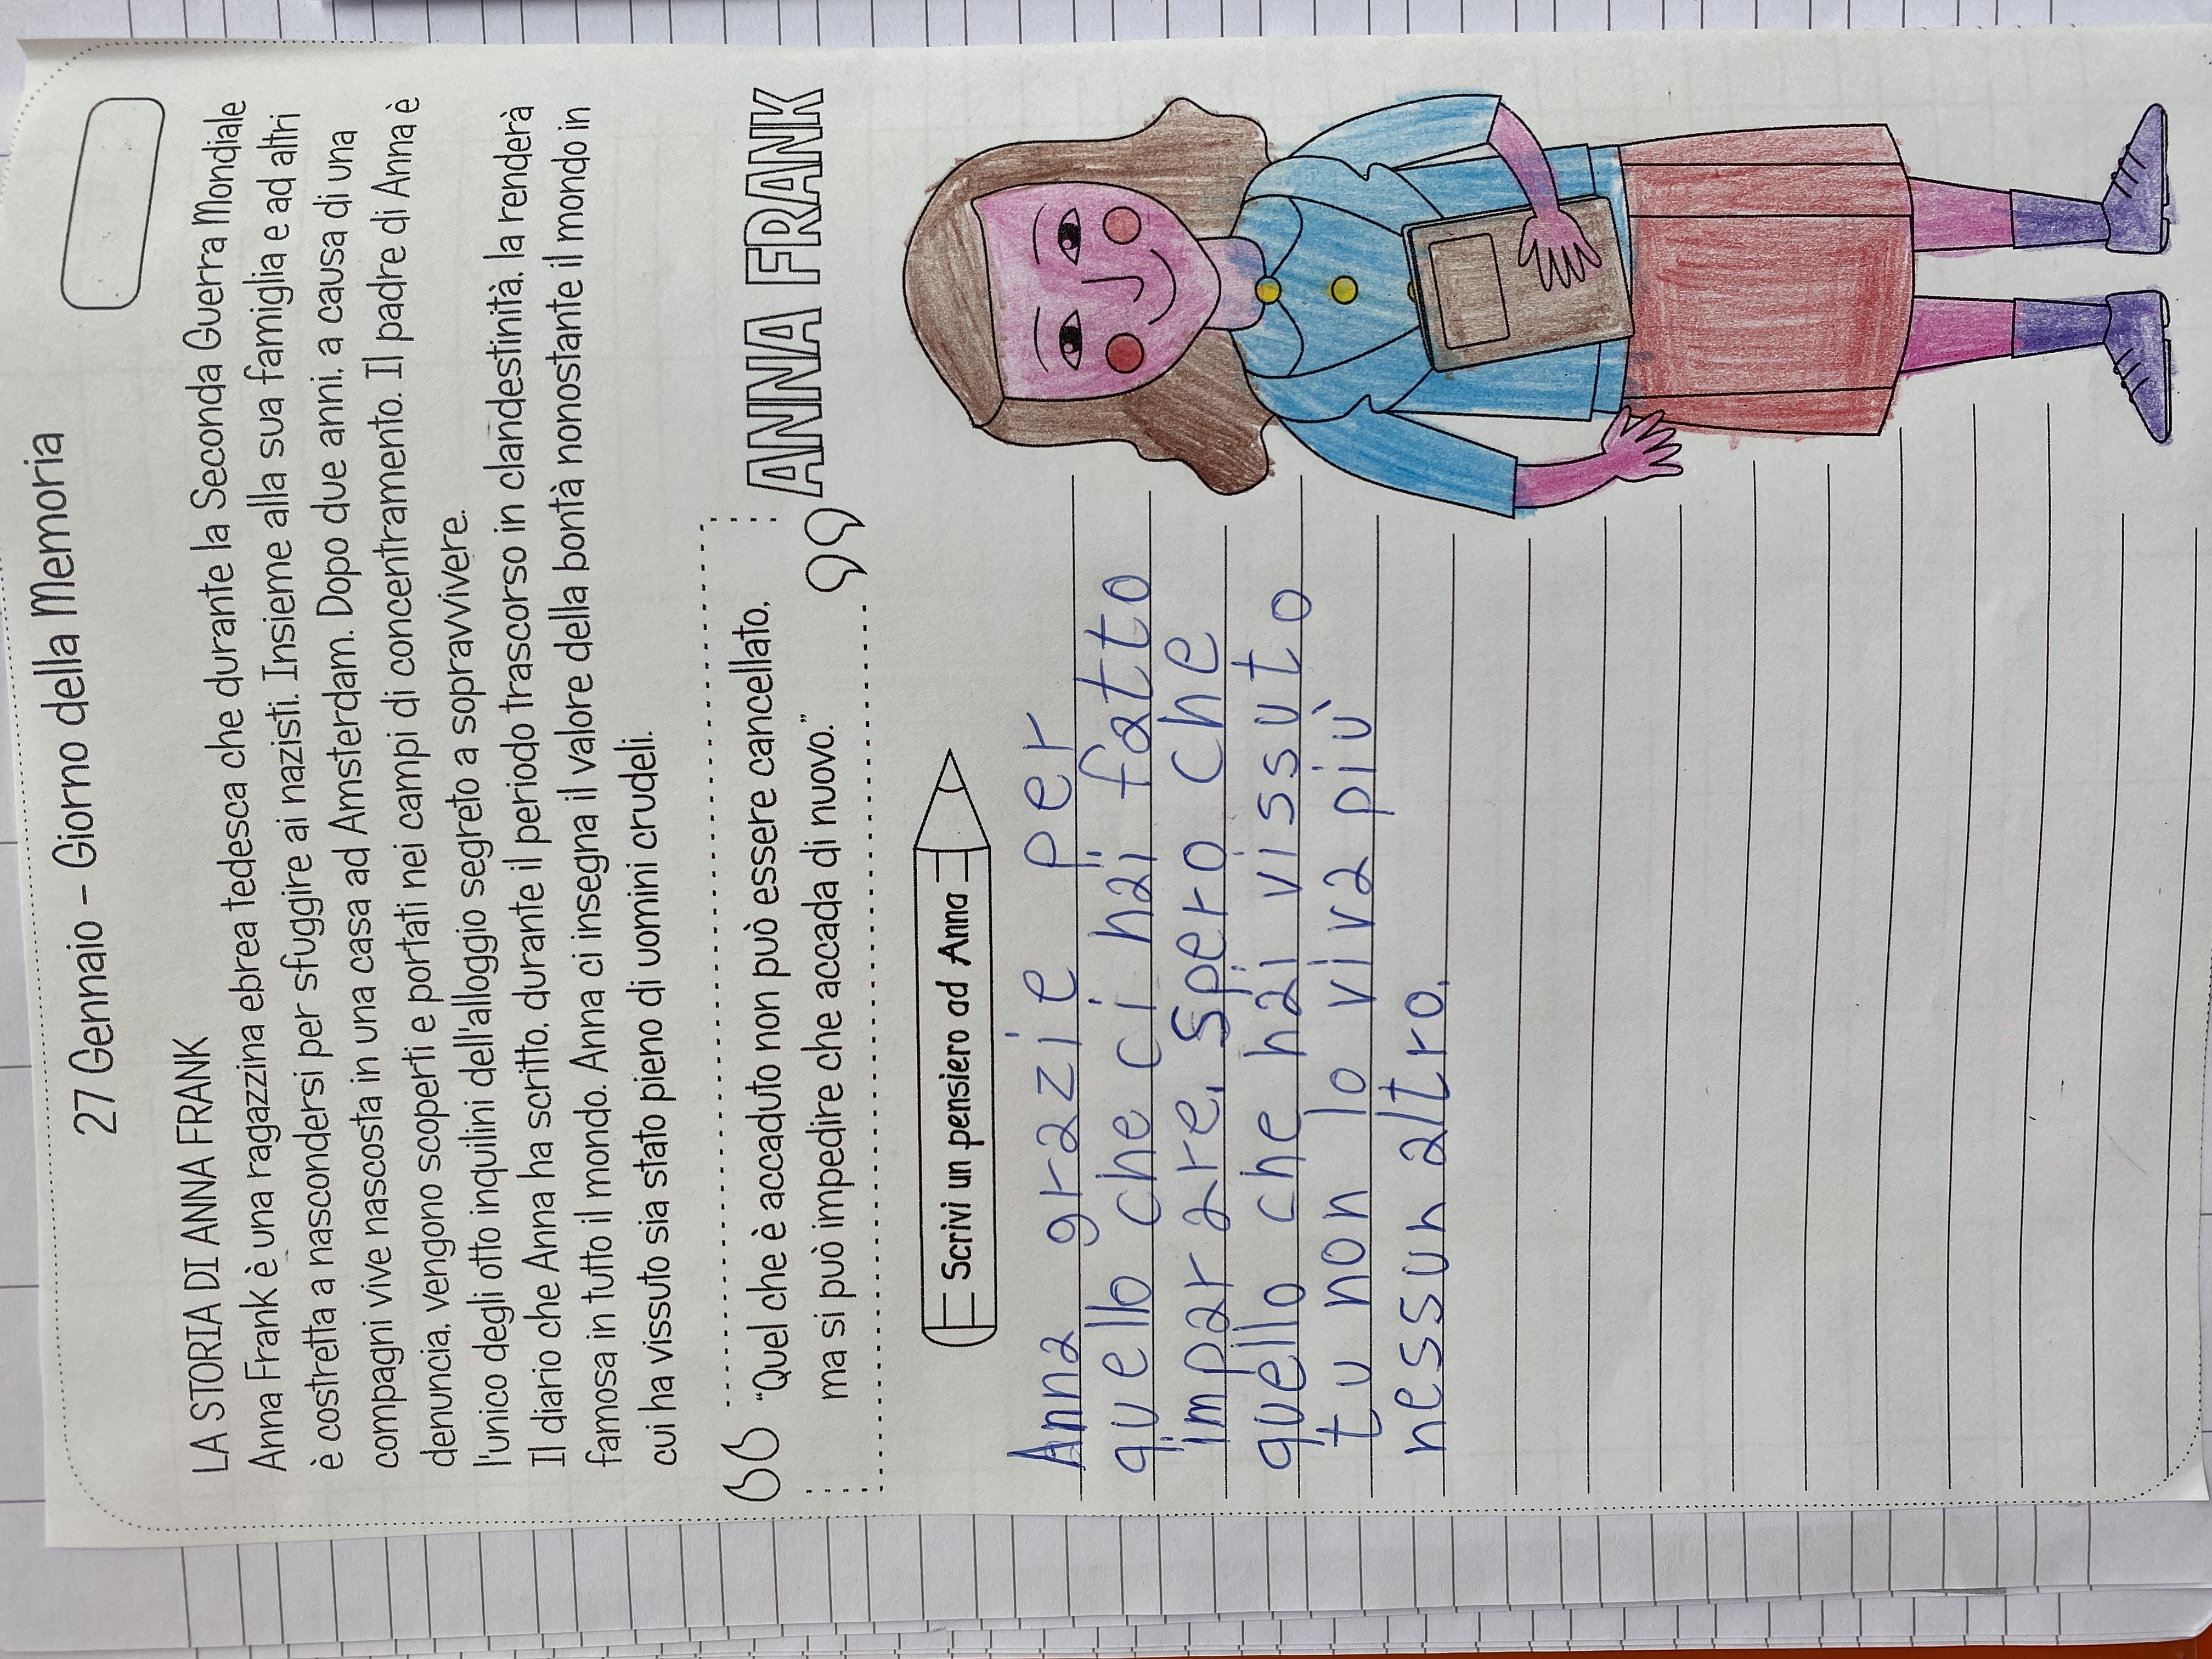 27 Gennaio - Giorno della Memoria
LA STORIA DI ANNA FRANK
Anna Frank è una ragazzina ebrea tedesca che durante la Seconda Guerra Mondiale
è costretta a nascondersi per sfuggire ai nazisti. Insieme alla sua famiglia e ad altri
compagni vive nascosta in una casa ad Amsterdam. Dopo due anni, a causa di una
denuncia, vengono scoperti e portati nei campi di concentramento. Il padre di Anna è
l'unico degli otto inquilini dell'alloggio segreto a sopravvivere.
Il diario che Anna ha scritto, durante il periodo trascorso in clandestinità, la renderà
famosa in tutto il mondo. Anna ci insegna il valore della bontà nonostante il mondo in
cui ha vissuto sia stato pieno di uomini crudeli.
"Quel che è accaduto non può essere cancellato,
ma si può impedire che accada di nuovo."
ANNA FRANK
Scrivi un pensiero ad Anna
Anna grazie per
quello che ci hai fatto
imparare. Spero che
quello che hai vissuto
tu non lo viva più
nessun altro.